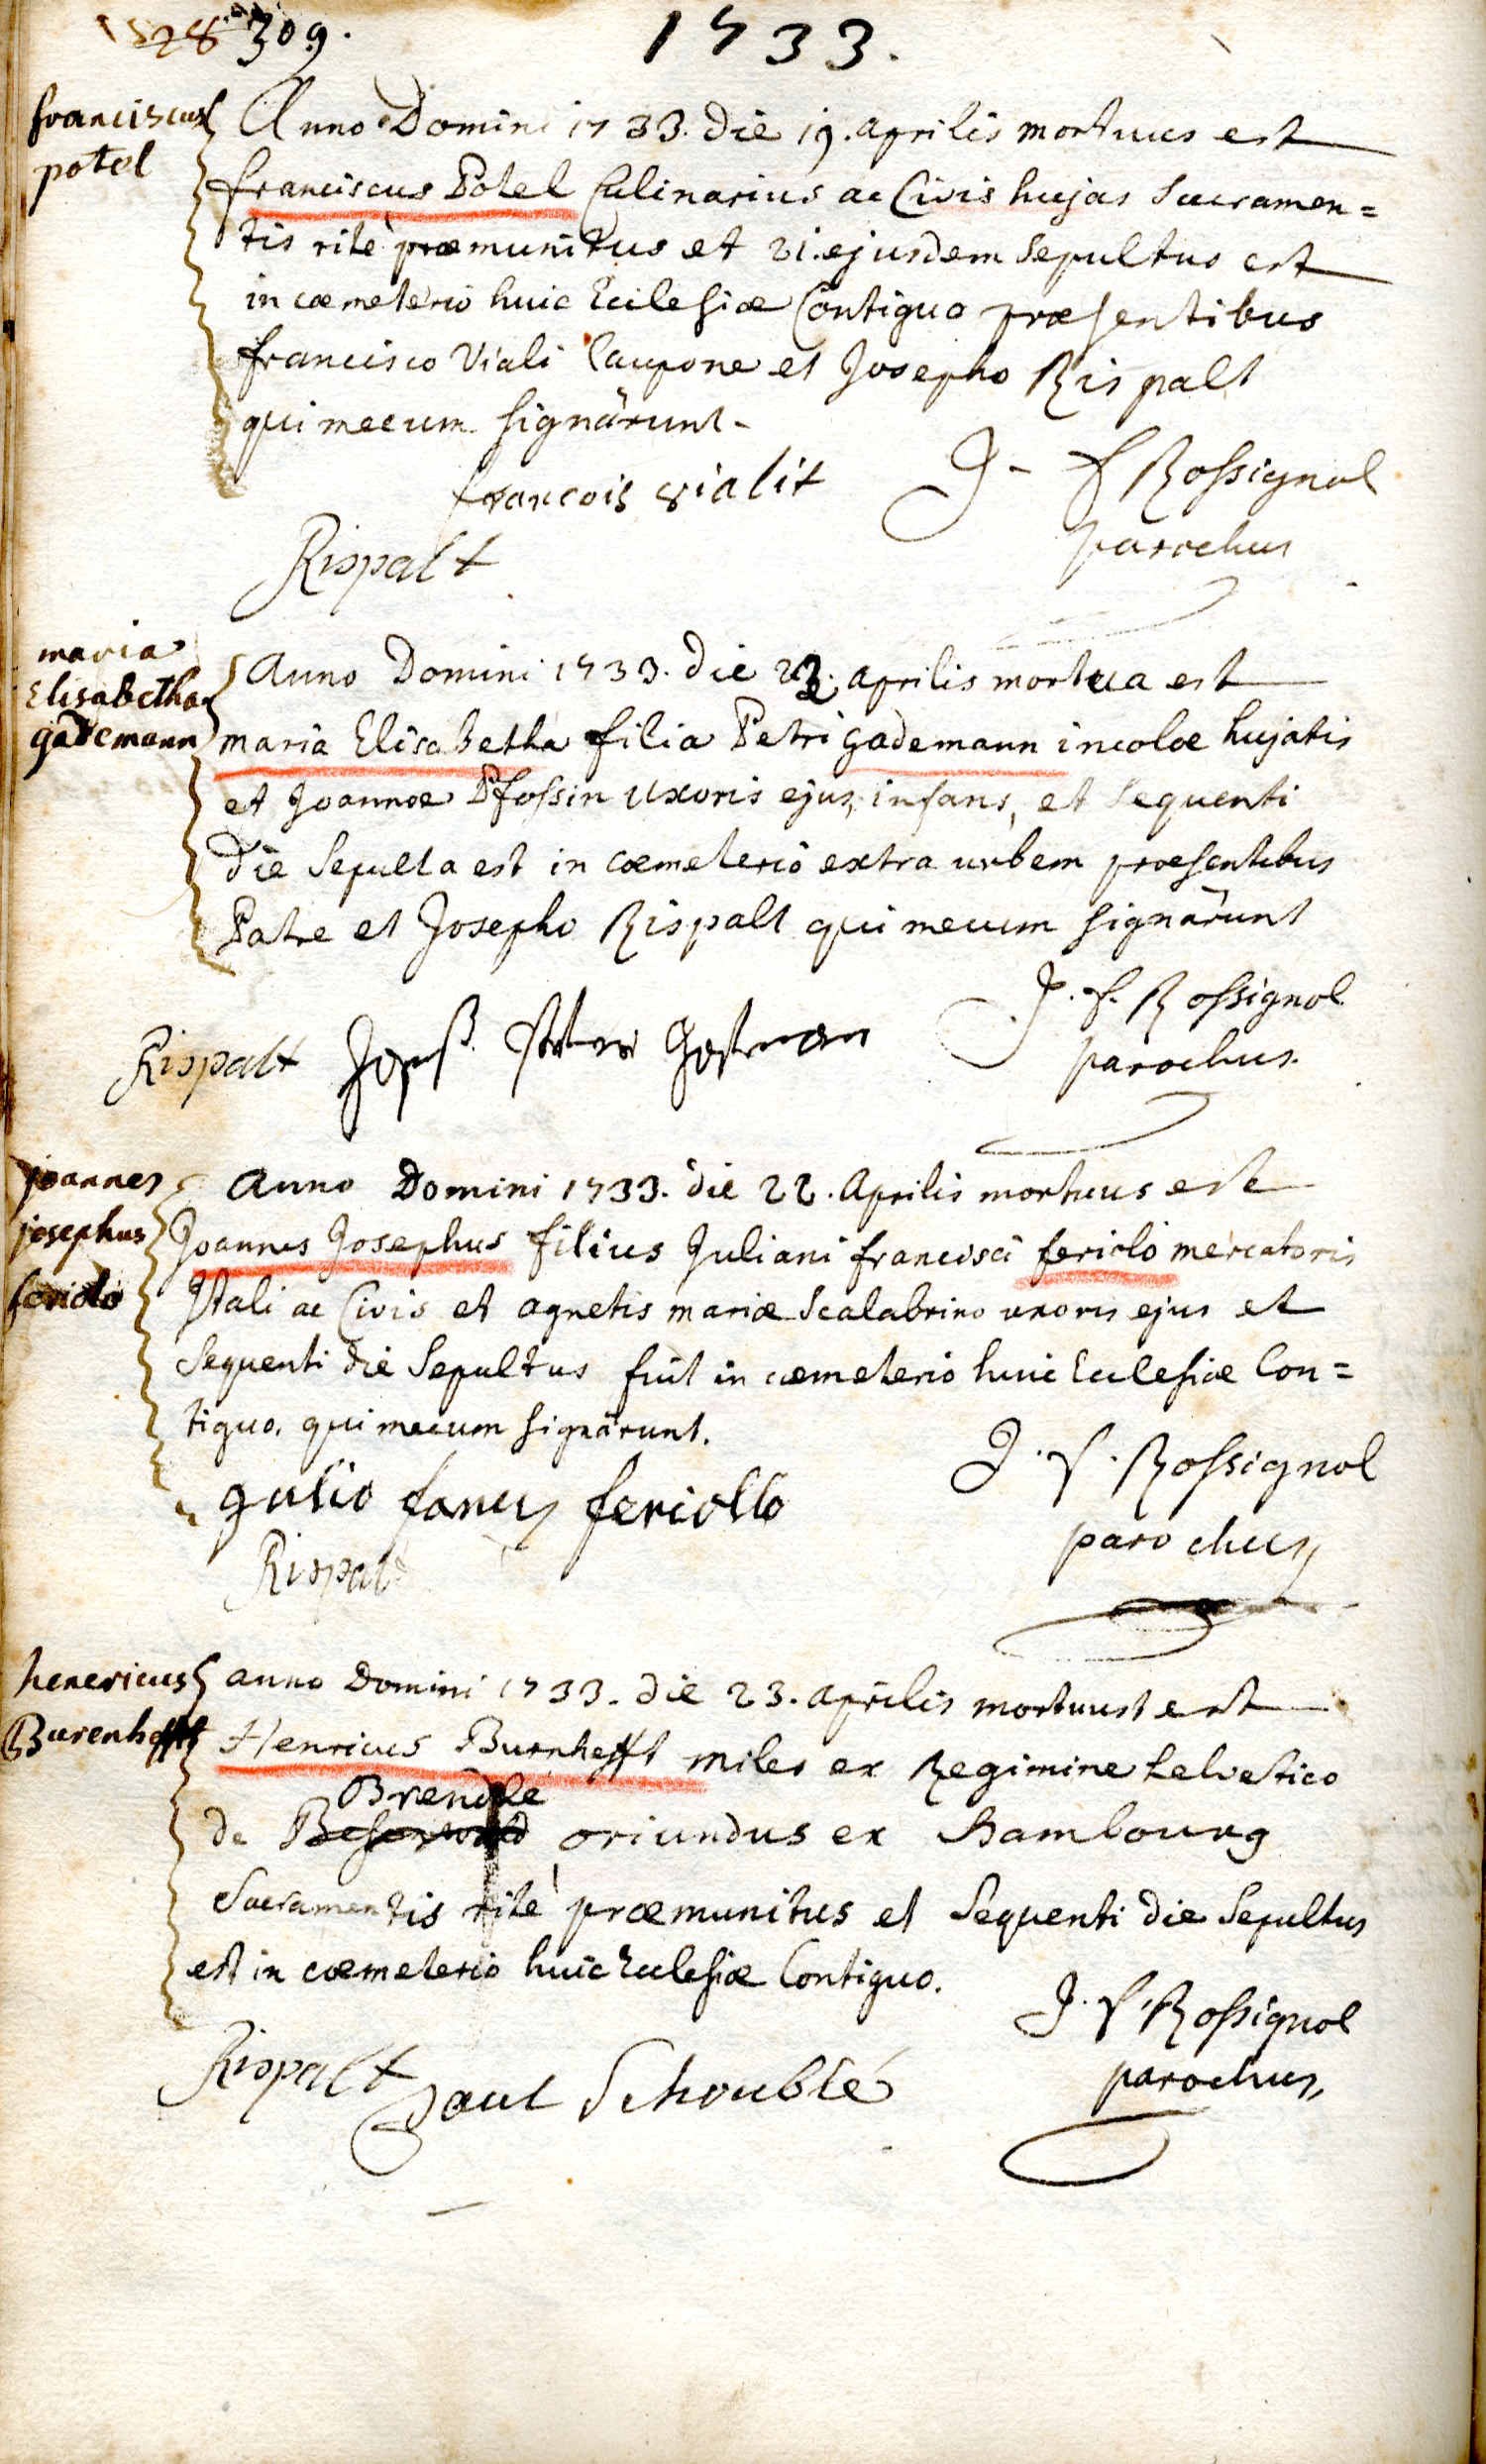 309.
1733.
franciscus
potel
Anno Domini 1733. die 19. aprilis mortuus est
franciscus Potel Culinarius ac Civis hujas Sacramen=
tis rite præmunitus et 21. ejusdem Sepultus est
in cœmeterio huic Ecclesiæ Contiguo præsentibus
francisco Viali Caupone et Josepho Rispalt
qui mecum signârunt.
francois vialit
J. f Rossignol
parochus
Rispalt
maria
Elisabetha
gademann
Anno Domini 1733. die 22. aprilis mortua est
maria Elisabetha filia Petri gademann incolæ hujatis
et Joannæ Pfossin uxoris ejus, infans, et Sequenti
die Sepulta est in cœmeterio extra urbem præsentibus
Patre et Josepho Rispalt qui mecum signârunt
J. f. Rossignol
parochus.
Rispalt
joannes
josephus
feriolo
Anno Domini 1733. die 22. Aprilis mortuus est
Joannes Josephus filius Juliani francisci feriolo mercatoris
Itali ac Civis et agnetis mariæ Scalabrino uxoris ejus et
Sequenti die Sepultus fuit in cœmeterio huic Ecclesiæ Con=
tiguo. qui mecum signârunt.
J. f. Rossignol
parochus
gulio feriollo
Rispalt
henericus
Burenhefft
anno Domini 1733. die 23. aprilis mortuus est
Henricus Burnhefft miles ex Regimine helvetico
Brendle
de oriundus ex Hambourg
Sacramentis rite præmunitus et Sequenti die Sepultus
est in cœmeterio huic Ecclesiæ Contiguo.
J. f. Rossignol
parochus,
Rispalt
Paul Schouble